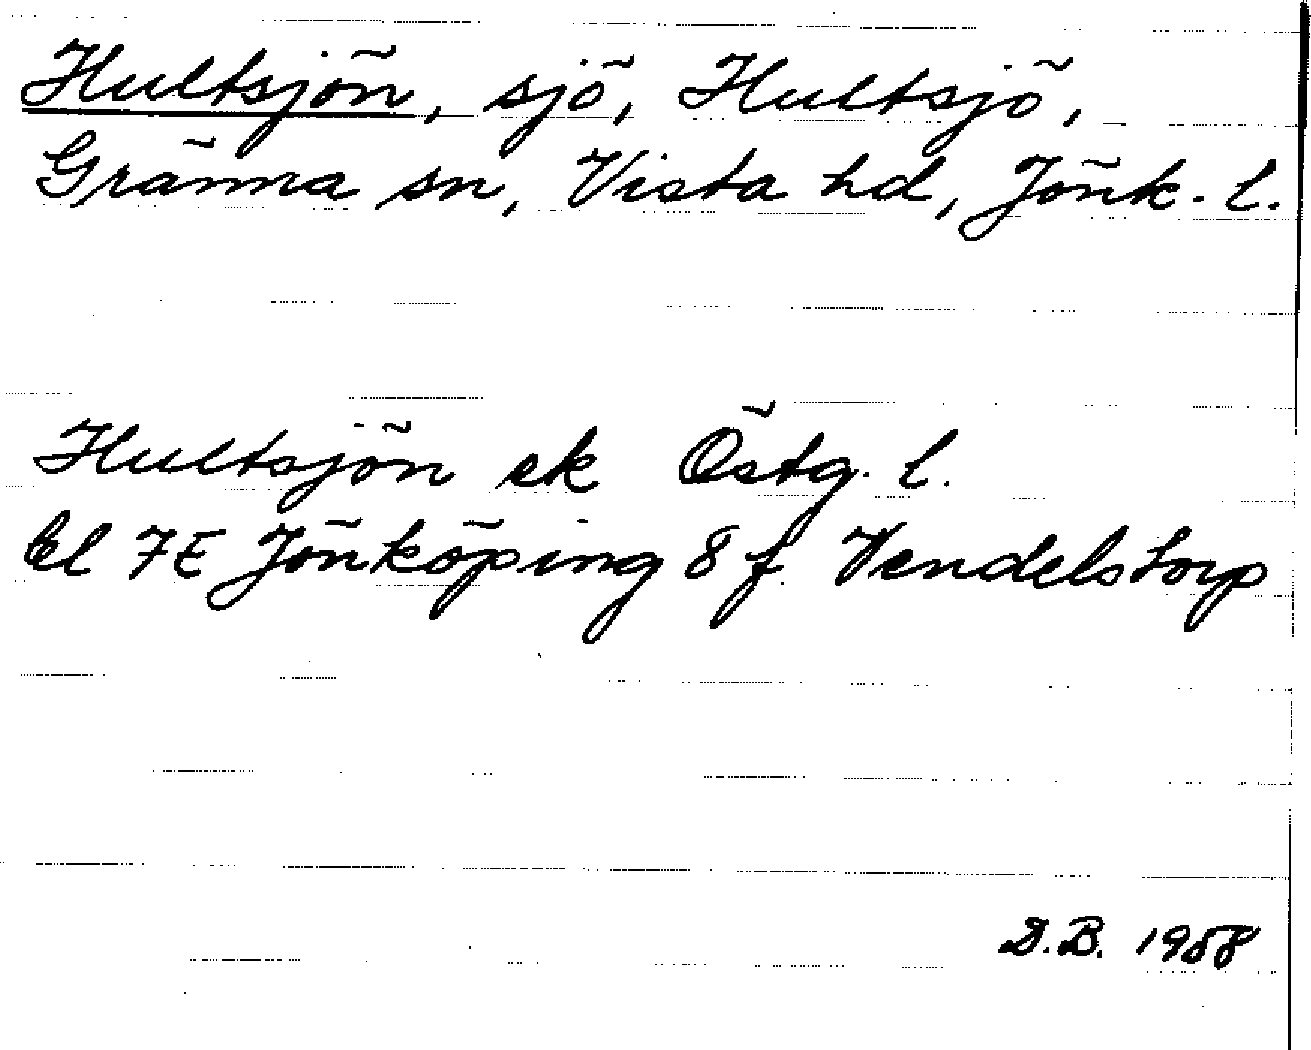 Hultsjön, sjö, Hultsjö,
Gränna sn, Vista hd, Jönk. l.
Hultsjön ek Östg. l.
bl 7E Jönköping 8 f Vendelstorp
D.B. 1958